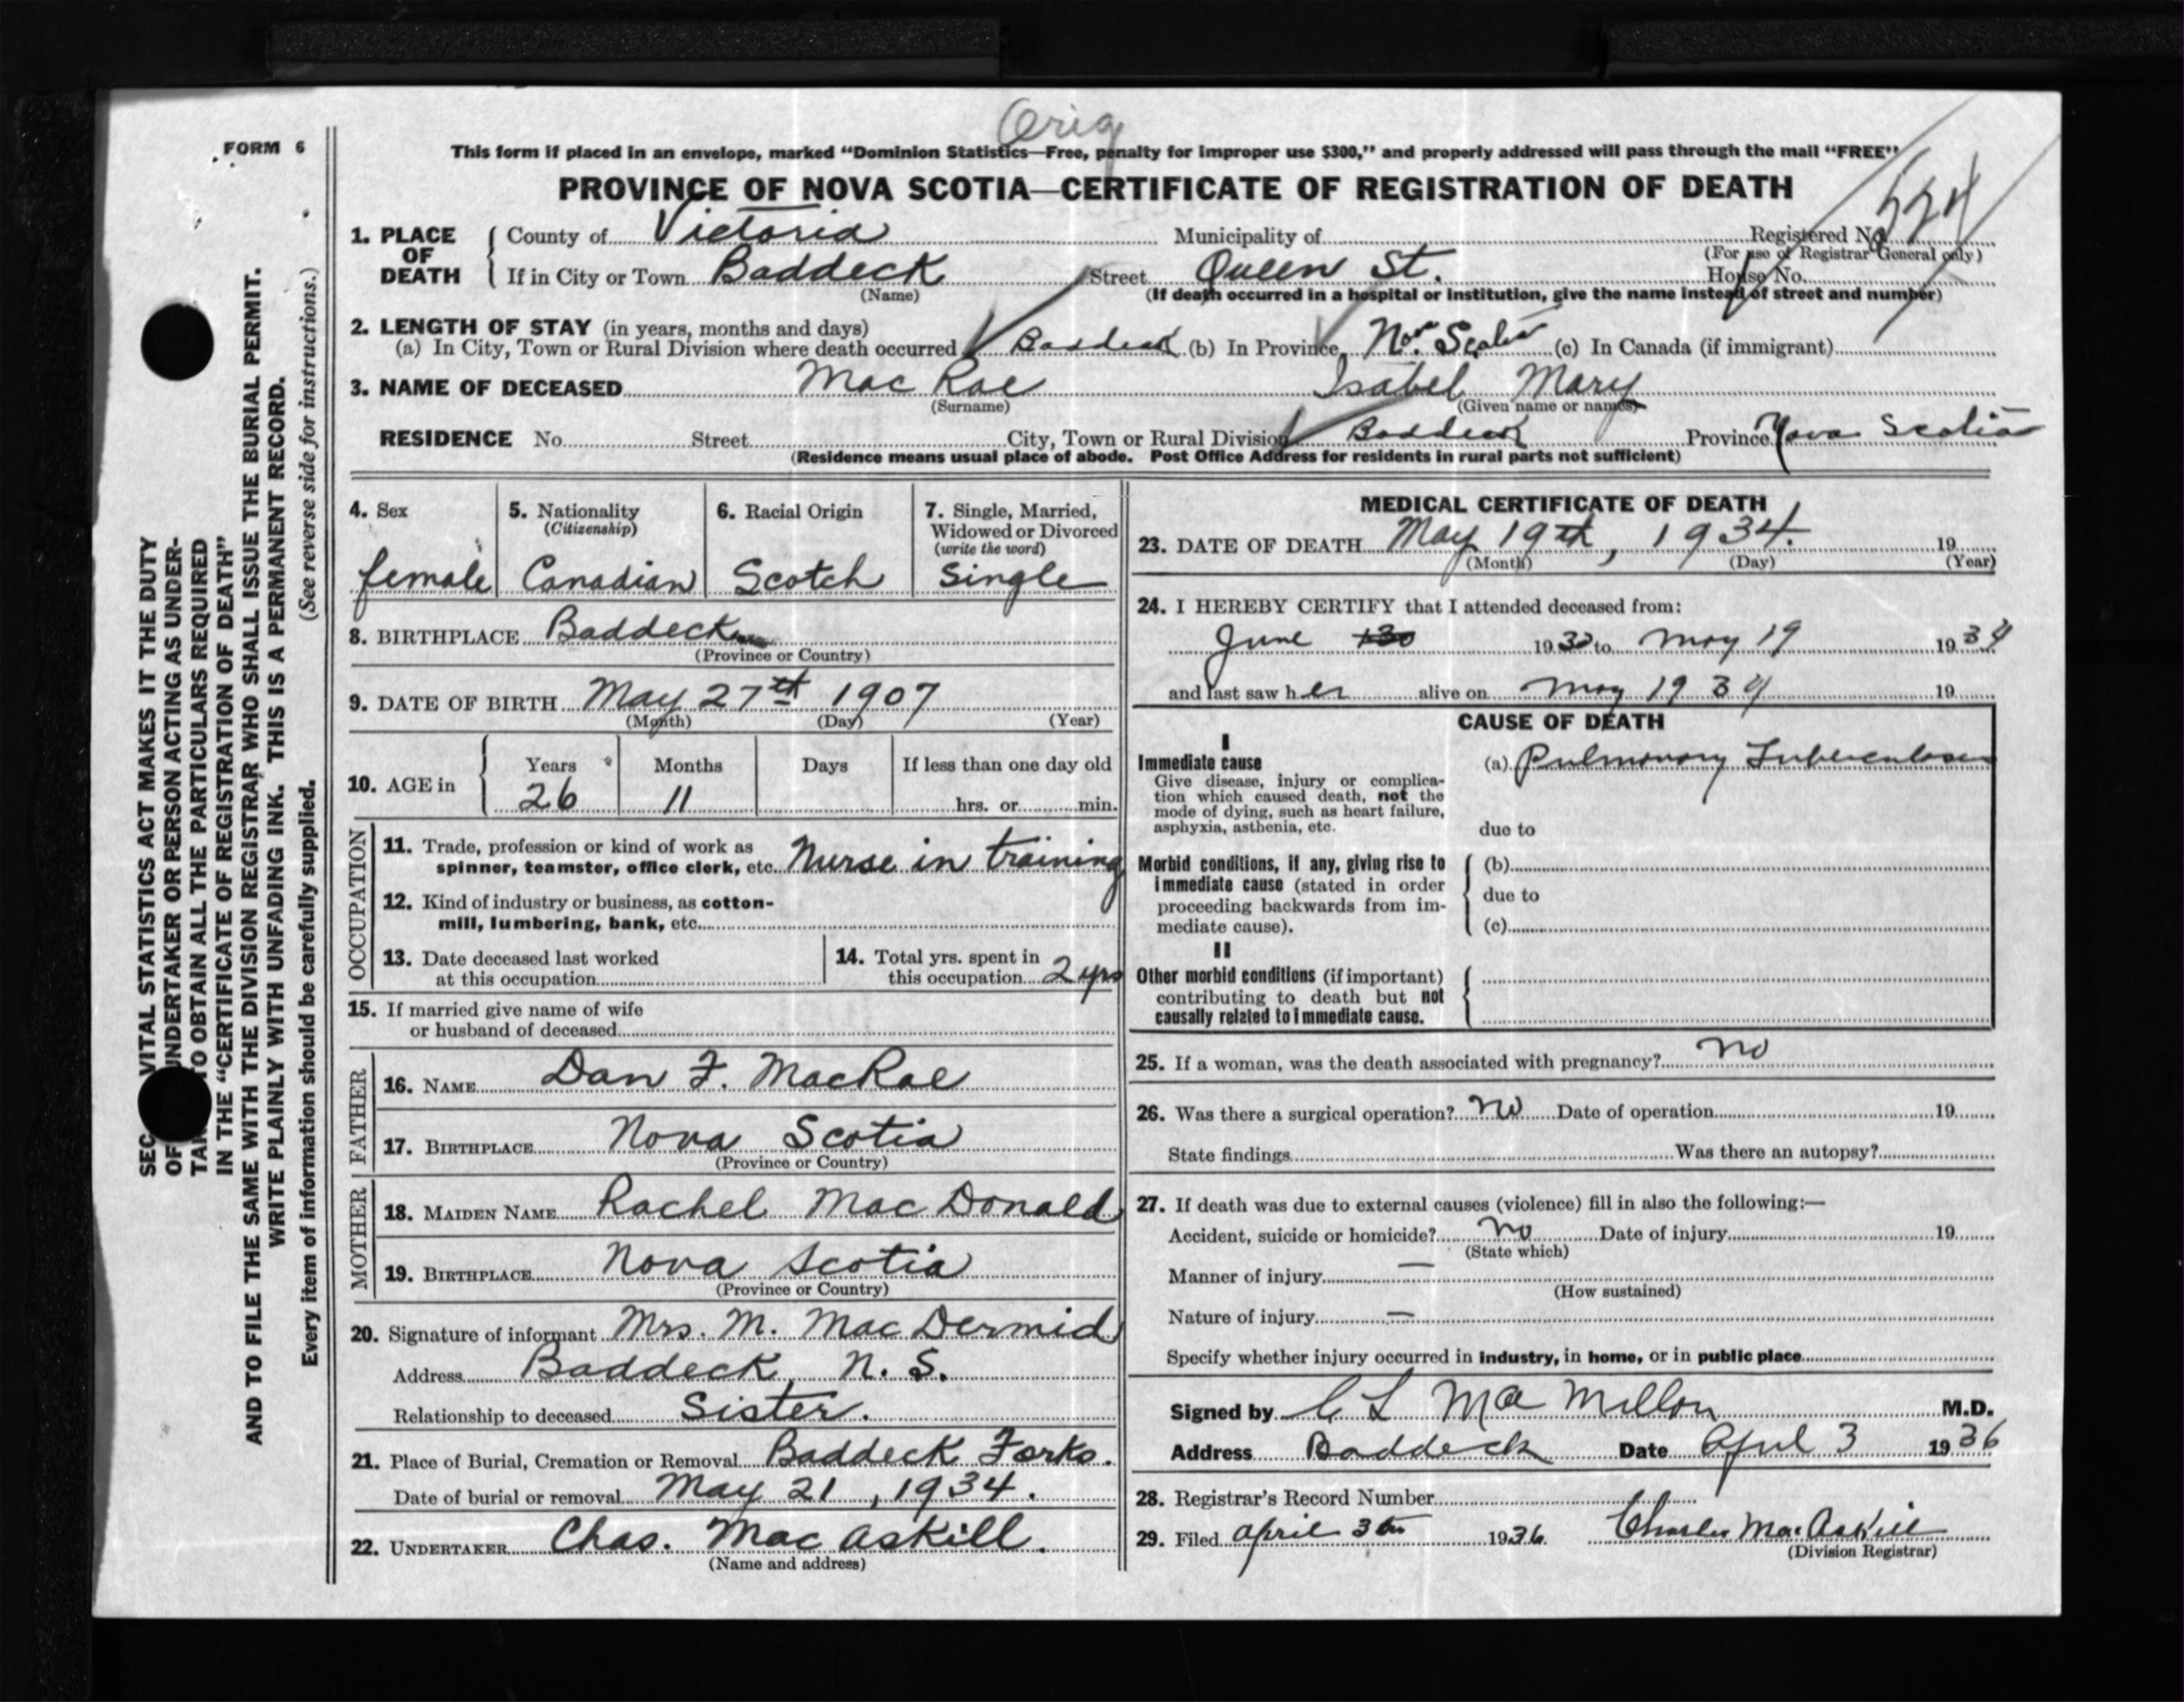 Orig
FORM 6
This form if placed in an envelope, marked “Dominion Statistics—Free, penalty for improper use $300,” and properly addressed will pass through the mail “FREE”
PROVINCE OF NOVA SCOTIA—CERTIFICATE OF REGISTRATION OF DEATH
1. PLACE OF DEATH { County of Victoria Municipality of Registered No. 524
(For use of Registrar General only)
If in City or Town Baddeck Street Queen St. House No.
(Name) (If death occurred in a hospital or institution, give the name instead of street and number)
2. LENGTH OF STAY (in years, months and days)
(a) In City, Town or Rural Division where death occurred Baddeck (b) In Province Nov. Scotia (c) In Canada (if immigrant)
3. NAME OF DECEASED Mac Rae Isabel Mary
(Surname) (Given name or names)
RESIDENCE No. Street City, Town or Rural Division Baddeck Province Nova Scotia
(Residence means usual place of abode. Post Office Address for residents in rural parts not sufficient)
4. Sex female
5. Nationality (Citizenship) Canadian
6. Racial Origin Scotch
7. Single, Married, Widowed or Divorced (write the word) Single
8. BIRTHPLACE Baddeck
(Province or Country)
9. DATE OF BIRTH May 27th 1907
(Month) (Day) (Year)
10. AGE in { Years 26 Months 11 Days If less than one day old hrs. or min.
OCCUPATION
11. Trade, profession or kind of work as
spinner, teamster, office clerk, etc. Nurse in training
12. Kind of industry or business, as cotton-
mill, lumbering, bank, etc.
13. Date deceased last worked
at this occupation
14. Total yrs. spent in
this occupation 2 yrs
15. If married give name of wife
or husband of deceased
FATHER
16. NAME Dan F. MacRae
17. BIRTHPLACE Nova Scotia
(Province or Country)
MOTHER
18. MAIDEN NAME Rachel MacDonald
19. BIRTHPLACE Nova Scotia
(Province or Country)
20. Signature of informant Mrs. M. MacDermid
Address Baddeck, N. S.
Relationship to deceased Sister.
21. Place of Burial, Cremation or Removal Baddeck Forks.
Date of burial or removal May 21, 1934.
22. UNDERTAKER Chas. MacAskill.
(Name and address)
MEDICAL CERTIFICATE OF DEATH
23. DATE OF DEATH May 19th, 1934. 19
(Month) (Day) (Year)
24. I HEREBY CERTIFY that I attended deceased from:
June 1933 to May 19 1934
and last saw her alive on May 19 34 19
CAUSE OF DEATH
I
Immediate cause
Give disease, injury or complica-
tion which caused death, not the
mode of dying, such as heart failure,
asphyxia, asthenia, etc.
(a) Pulmonary Tuberculosis
due to
Morbid conditions, if any, giving rise to
immediate cause (stated in order
proceeding backwards from im-
mediate cause).
(b)
due to
(c)
II
Other morbid conditions (if important)
contributing to death but not
causally related to immediate cause.
25. If a woman, was the death associated with pregnancy? no
26. Was there a surgical operation? no Date of operation 19
State findings Was there an autopsy?
27. If death was due to external causes (violence) fill in also the following:—
Accident, suicide or homicide? no Date of injury 19
(State which)
Manner of injury —
(How sustained)
Nature of injury —
Specify whether injury occurred in industry, in home, or in public place
Signed by C L MacMillan M.D.
Address Baddeck Date April 3 1936
28. Registrar's Record Number
29. Filed April 3 1936 Charles MacAskill
(Division Registrar)
VITAL STATISTICS ACT MAKES IT THE DUTY
UNDERTAKER OR PERSON ACTING AS UNDER-
TO OBTAIN ALL THE PARTICULARS REQUIRED
IN THE “CERTIFICATE OF REGISTRATION OF DEATH”
AND TO FILE THE SAME WITH THE DIVISION REGISTRAR WHO SHALL ISSUE THE BURIAL PERMIT.
WRITE PLAINLY WITH UNFADING INK. THIS IS A PERMANENT RECORD.
Every item of information should be carefully supplied. (See reverse side for instructions.)